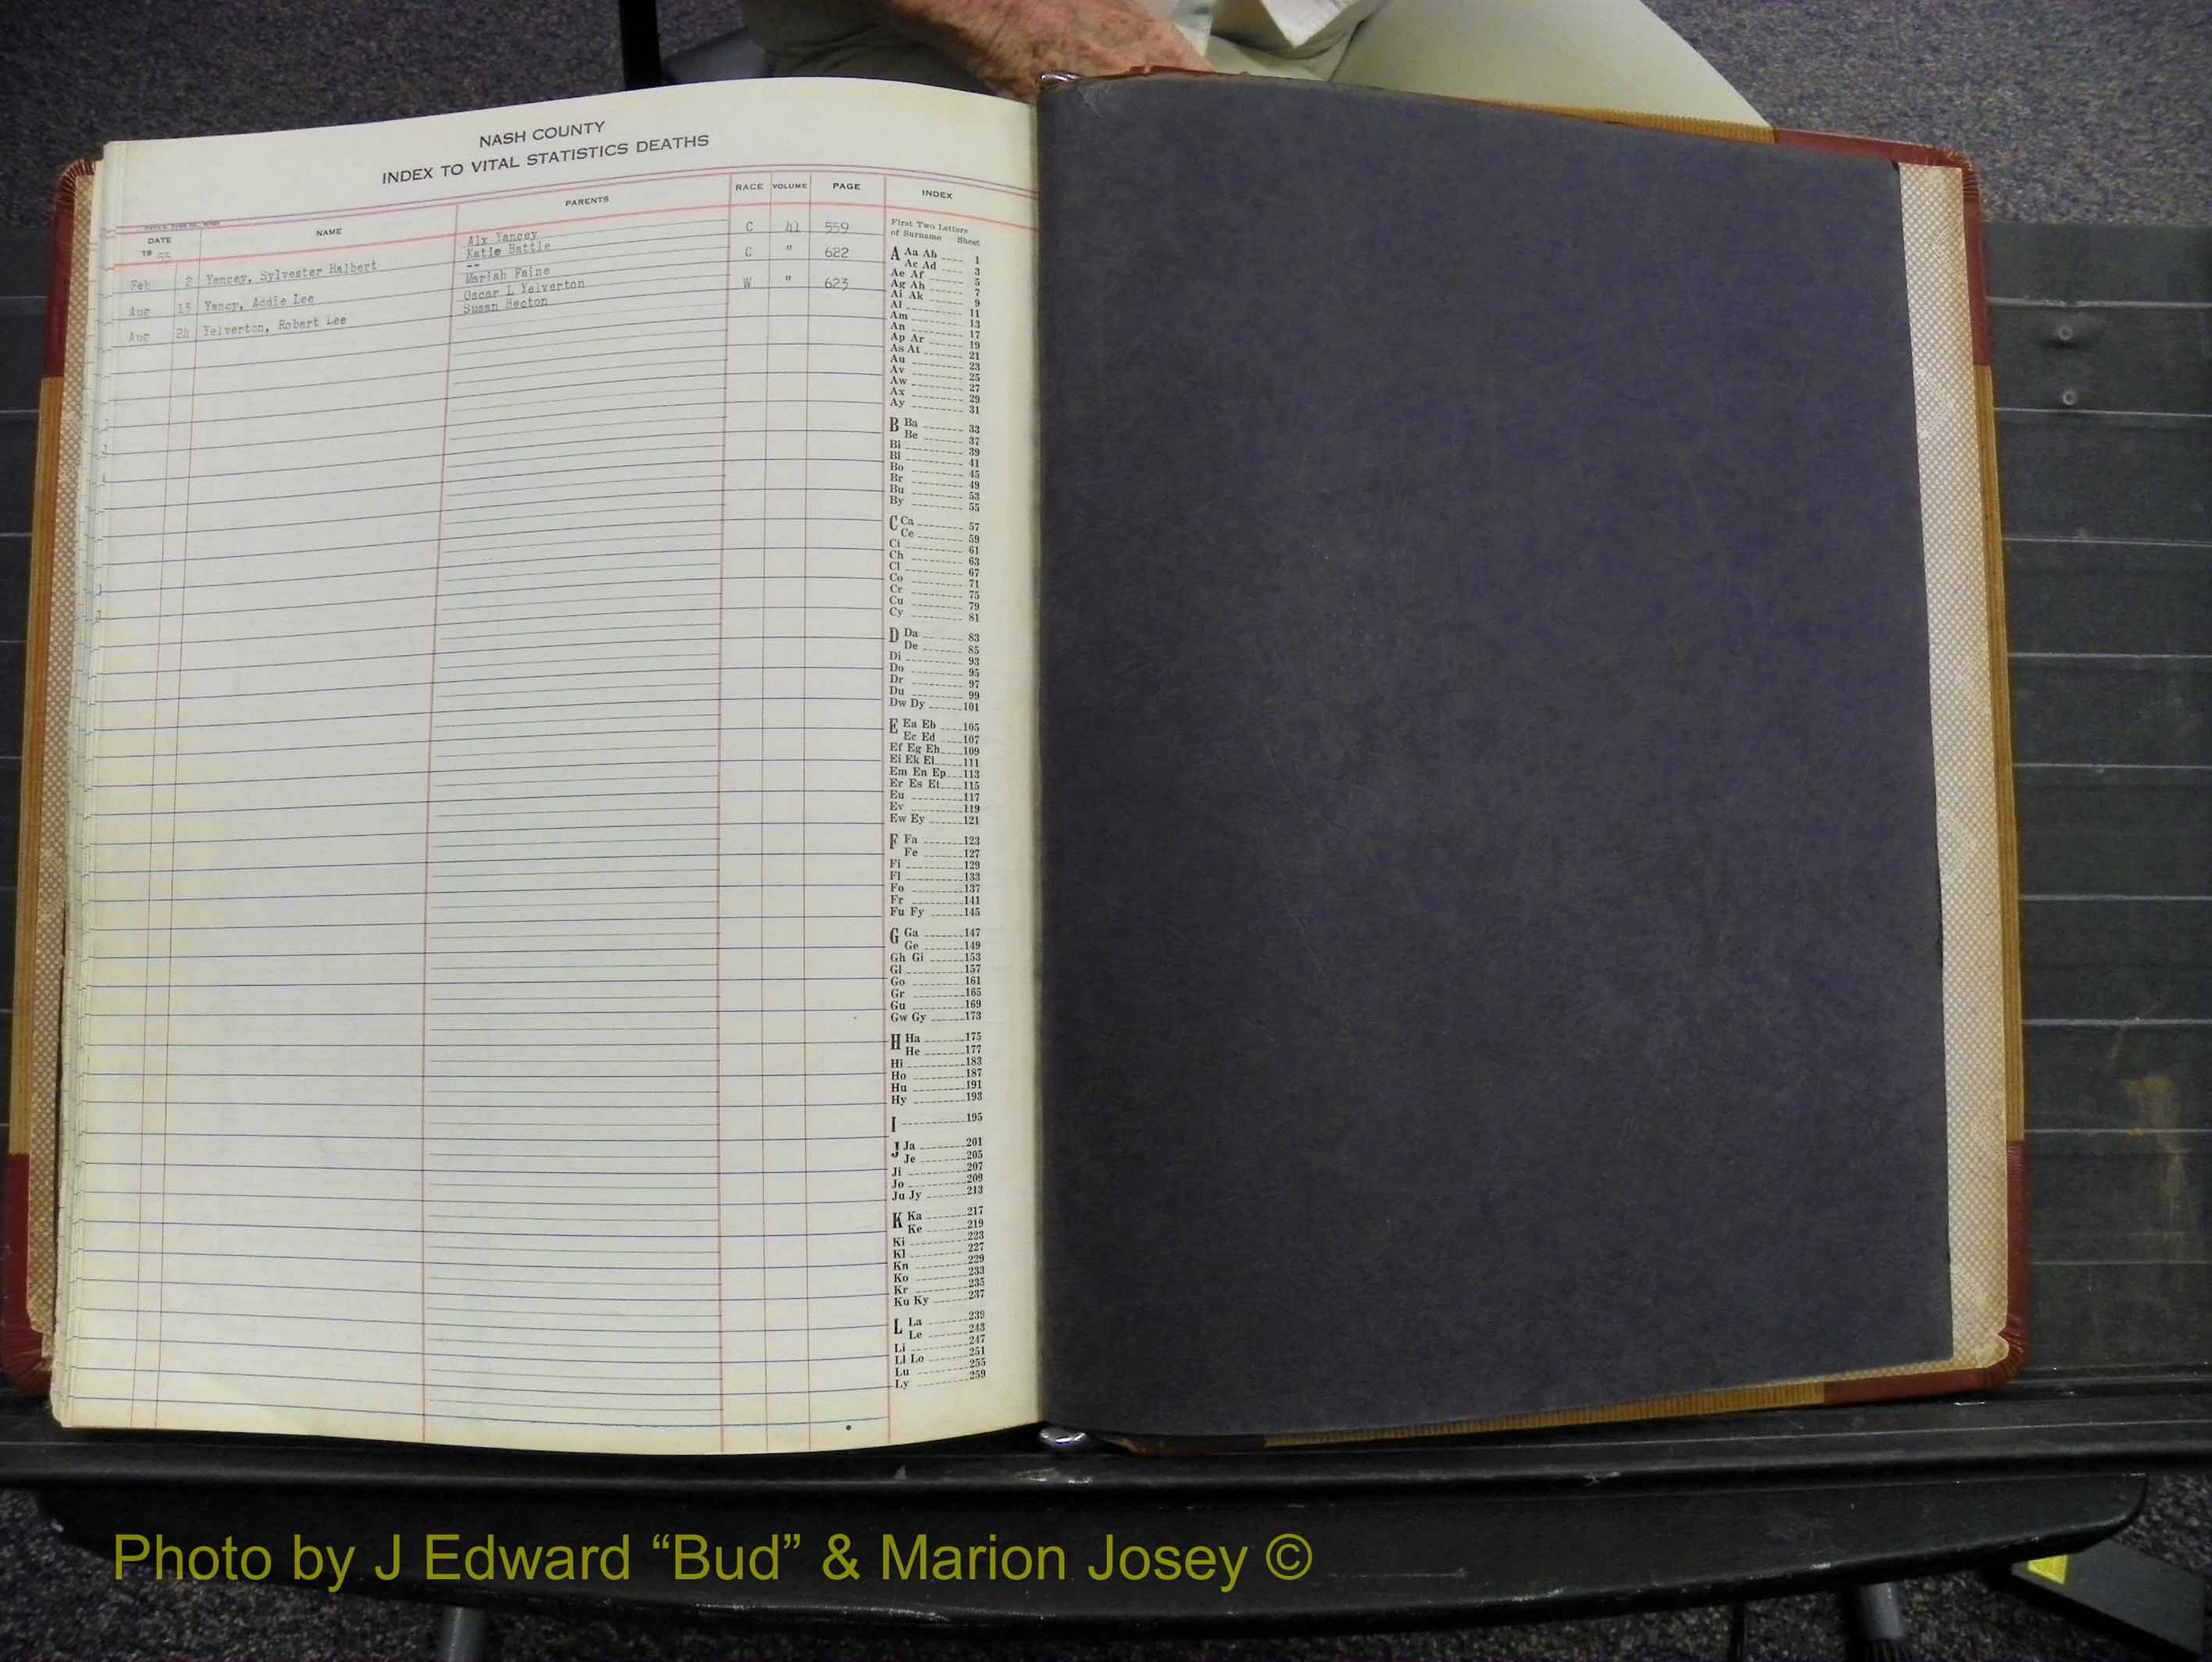 NASH COUNTY
INDEX TO VITAL STATISTICS DEATHS
DATE NAME PARENTS RACE VOLUME PAGE INDEX
19 55
Feb 2 Yancey, Sylvester Halbert Alx Yancey C 41 559
Katie Battle
Aug 13 Yancy, Addie Lee -- C " 622
Mariah Faine
Aug 24 Yelverton, Robert Lee Oscar L Yelverton W " 623
Susan Becton
First Two Letters
of Surname Sheet
A Aa Ab 1
Ac Ad 3
Ae Af 5
Ag Ah 7
Ai Ak 9
Al 11
Am 13
An 17
Ap Ar 19
As At 21
Au 23
Av 25
Aw 27
Ax 29
Ay 31
B Ba 33
Be 37
Bi 39
Bl 41
Bo 45
Br 49
Bu 53
By 55
C Ca 57
Ce 59
Ci 61
Ch 63
Cl 67
Co 71
Cr 75
Cu 79
Cy 81
D Da 83
De 85
Di 93
Do 95
Dr 97
Du 99
Dw Dy 101
E Ea Eb 105
Ec Ed 107
Ef Eg Eh 109
Ei Ek El 111
Em En Ep 113
Er Es Et 115
Eu 117
Ev 119
Ew Ey 121
F Fa 123
Fe 127
Fi 129
Fl 133
Fo 137
Fr 141
Fu Fy 145
G Ga 147
Ge 149
Gh Gi 153
Gl 157
Go 161
Gr 165
Gu 169
Gw Gy 173
H Ha 175
He 177
Hi 183
Ho 187
Hu 191
Hy 193
I 195
J Ja 201
Je 205
Ji 207
Jo 209
Ju Jy 213
K Ka 217
Ke 219
Ki 223
Kl 227
Kn 229
Ko 233
Kr 235
Ku Ky 237
L La 239
Le 243
Li 247
Ll Lo 251
Lu 255
Ly 259
Photo by J Edward “Bud” & Marion Josey ©